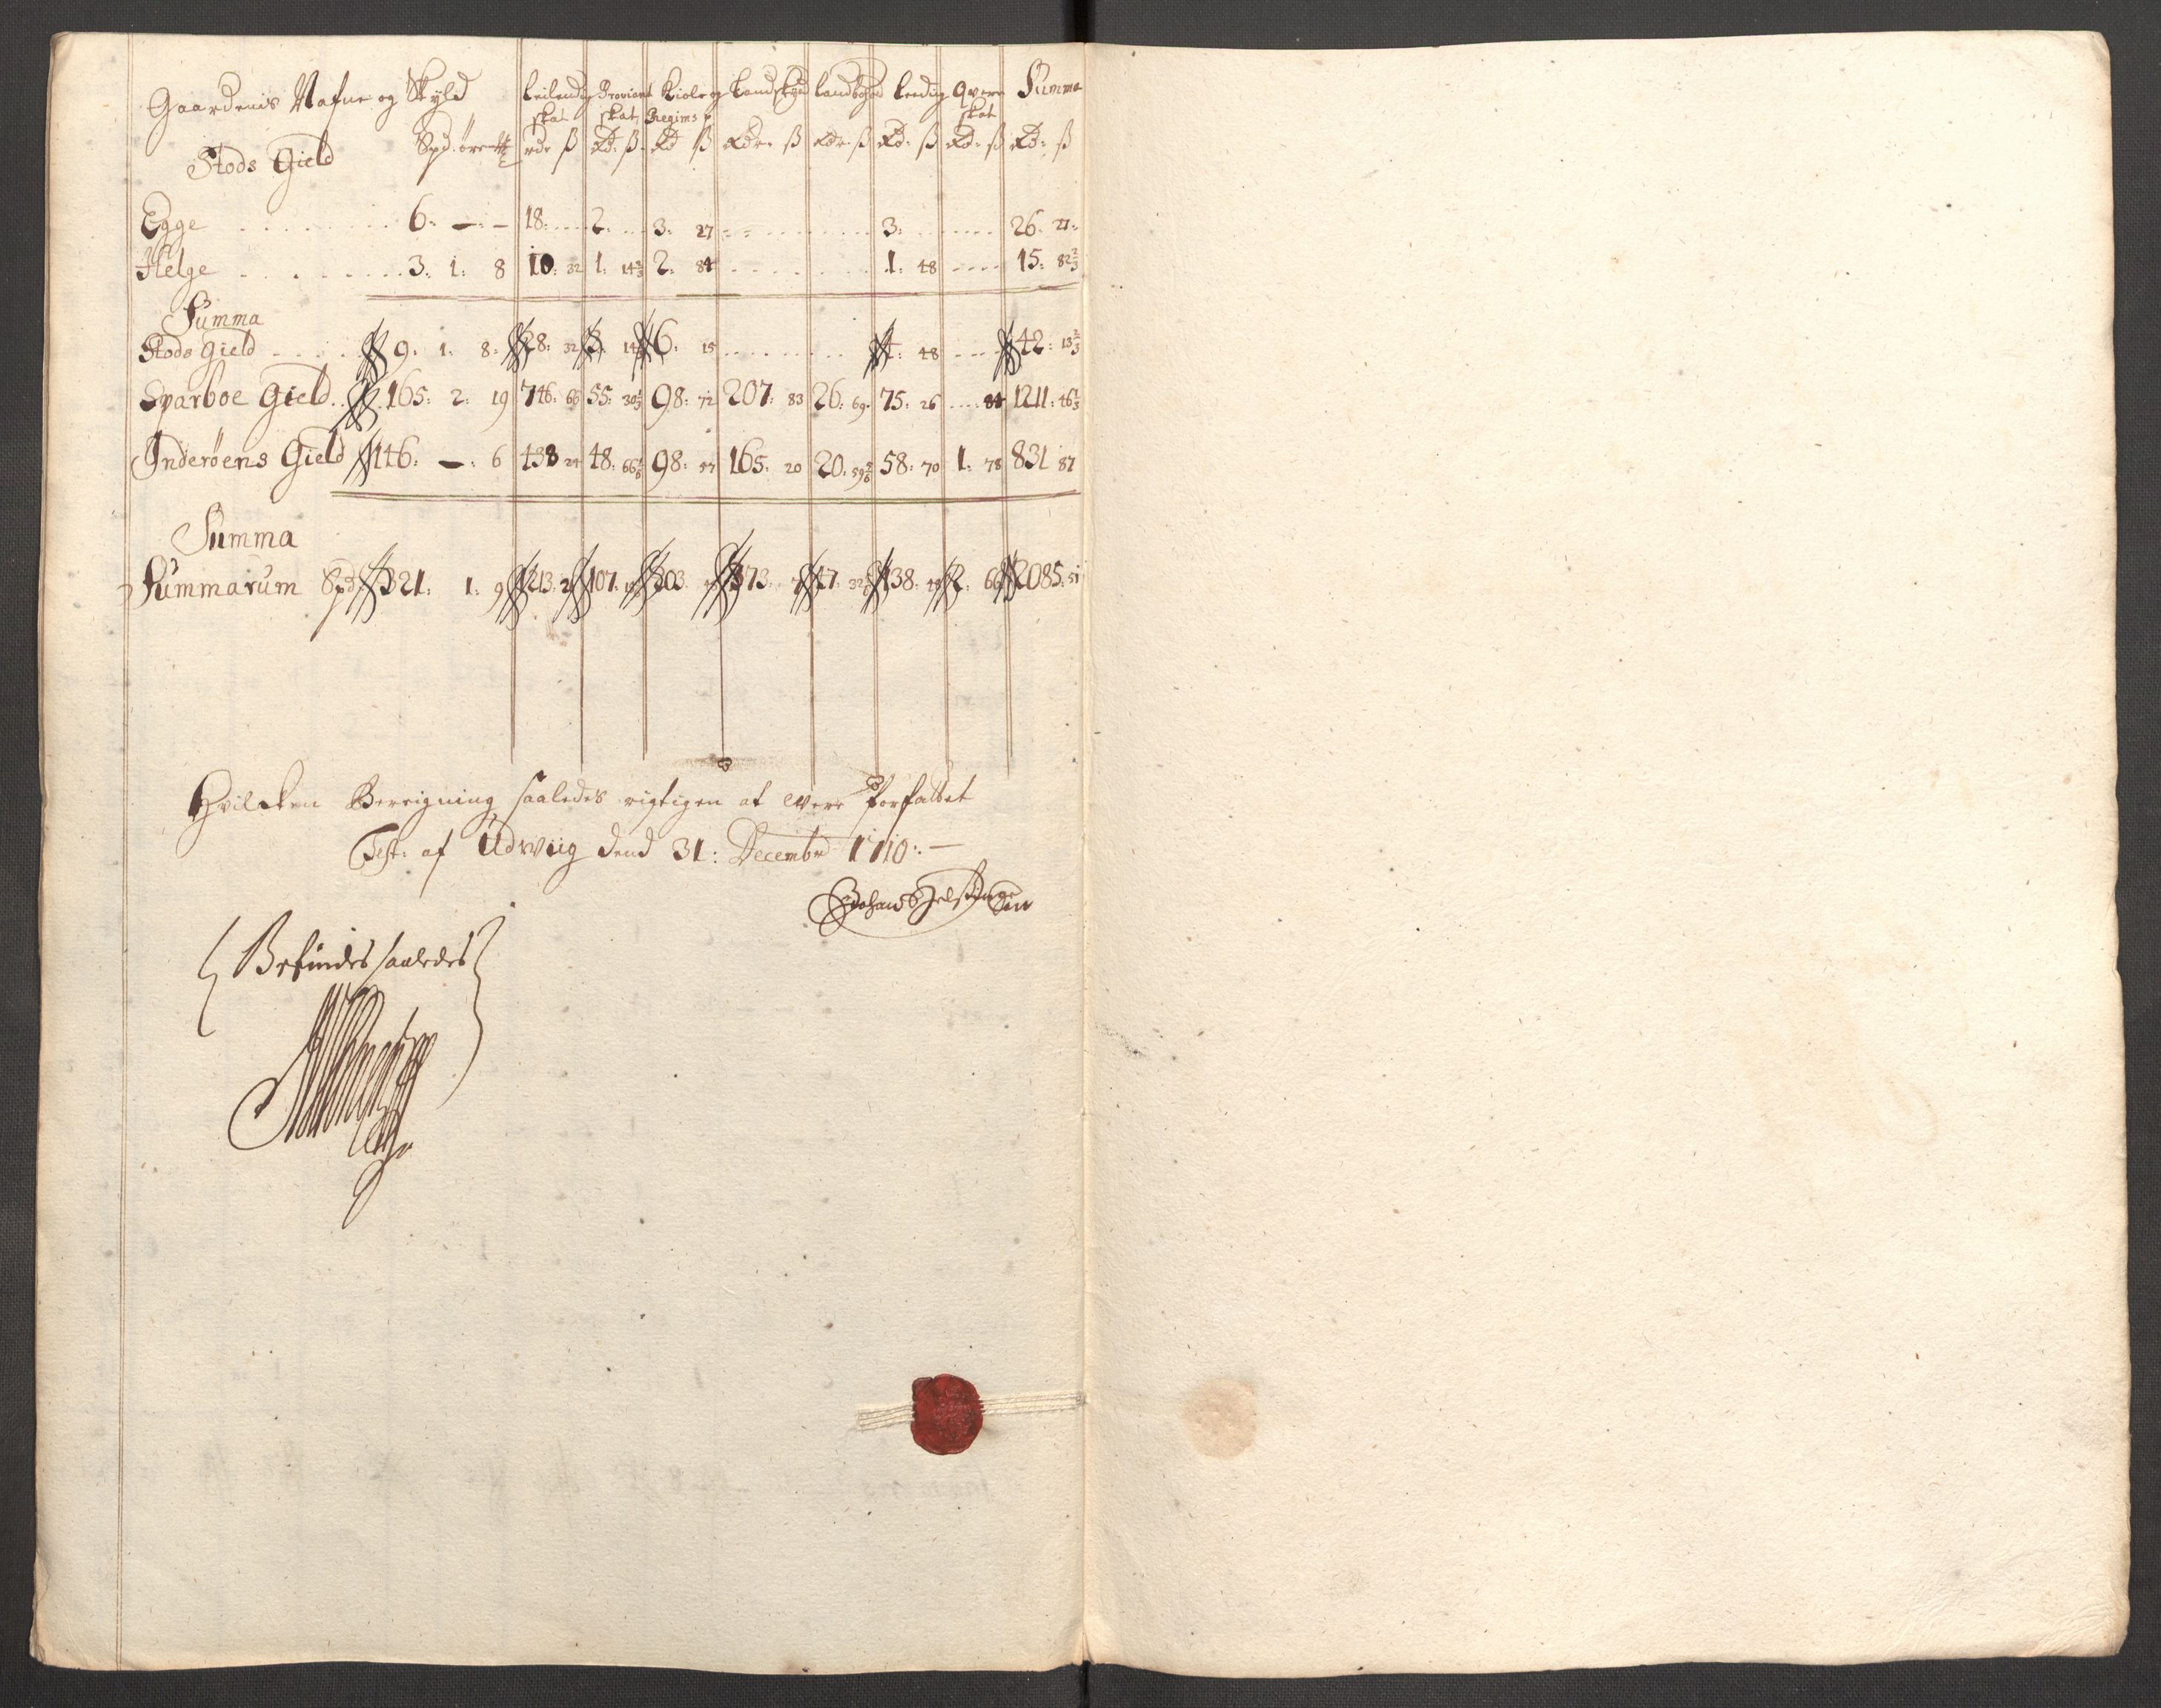 Gaardenis Nafne og Skyld Leilendig Proviant Kiole og Landskyld Landbogd Leeding Qvern Summa
skat skat Regims p skat
Stods Gield Spd: öre rdr ß Rd: ß Rd ß Rdr ß Rdr ß Rd: ß Rd: ß Rd: ß
Egge 6: — : — 18: 2: 3: 27 3: 26: 27:
Helge 3: 1: 8 10: 32 1: 14 2/3 2: 84 1: 48 15: 82 2/3
Summa
Stods Gield 9: 1: 8: 28: 32 3: 14 2/3 6: 15 4: 48 42: 13 2/3
Sparboe Gield 165: 2: 19 746: 65 55: 30 98: 72 207: 83 26: 69 75: 26 84 1211: 46 1/3
Inderöens Gield 146: — : 6 438 24 48: 66 98: 57 165: 20 20: 59 58: 70 1: 78 831 87
Summa
Summarum Spd 321: 1: 9 1213: 107: 203: 373: 47: 32 138: 48 2: 66 2085: 51
Hvilcken Bereigning saaledes rigtigen at were forfattet
Test: af Udwiig dend 31: Decembr 1710: —
Befindes saaledes